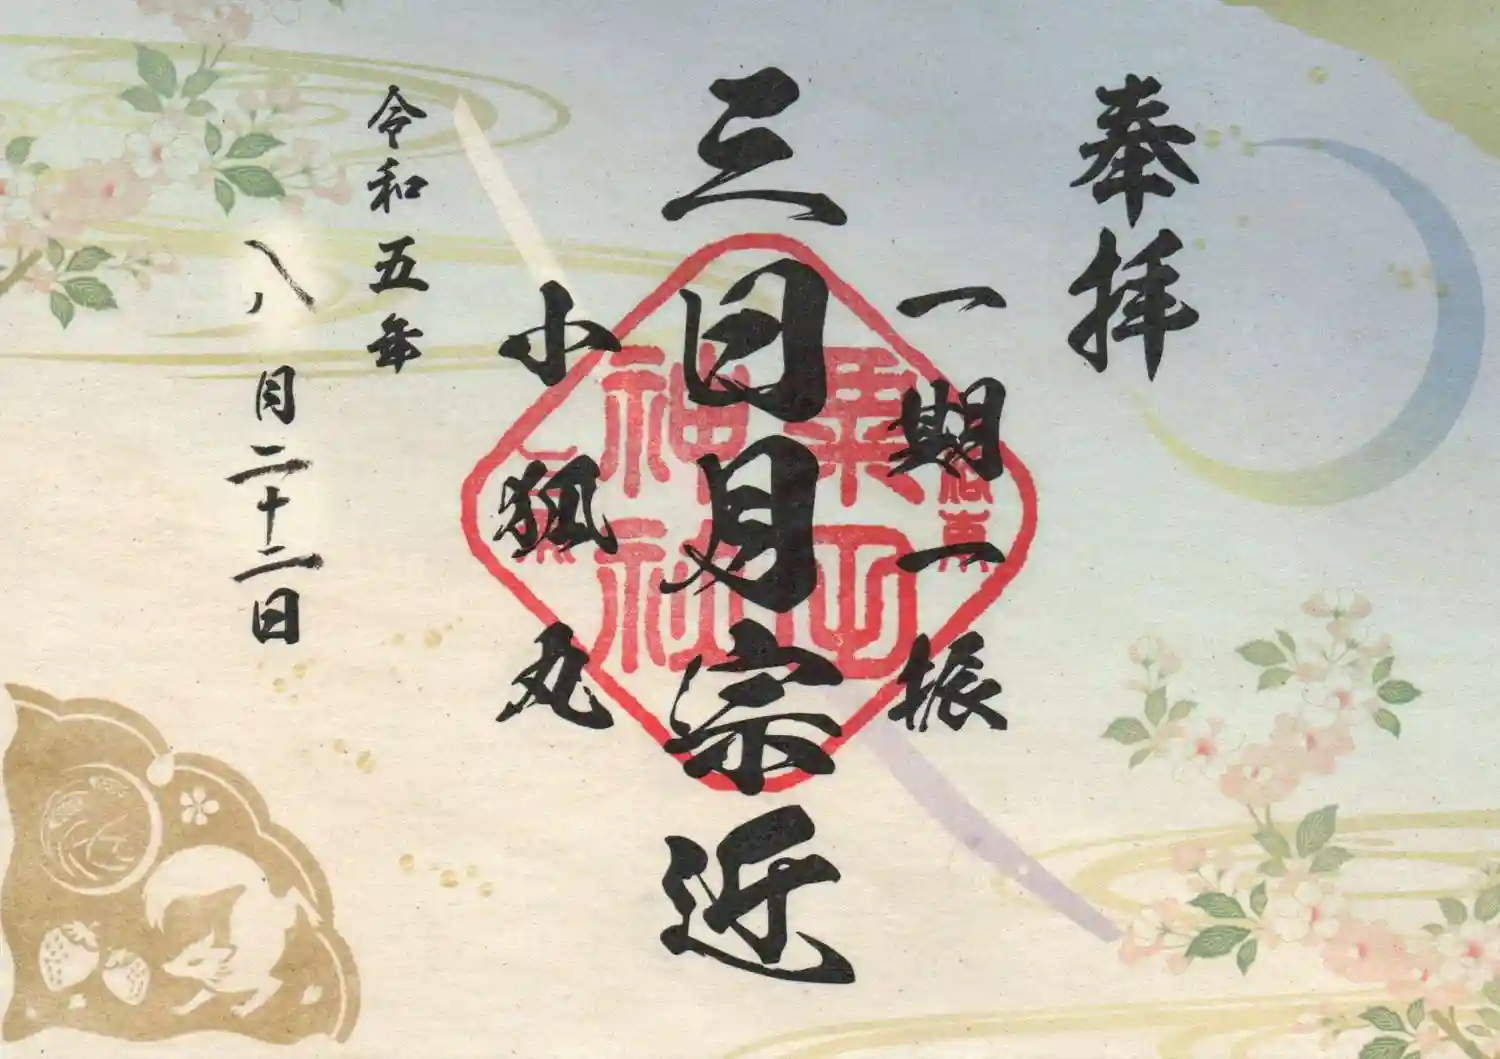 奉拝
一期一振
三日月宗近
小狐丸
令和五年
八月二十二日
神社